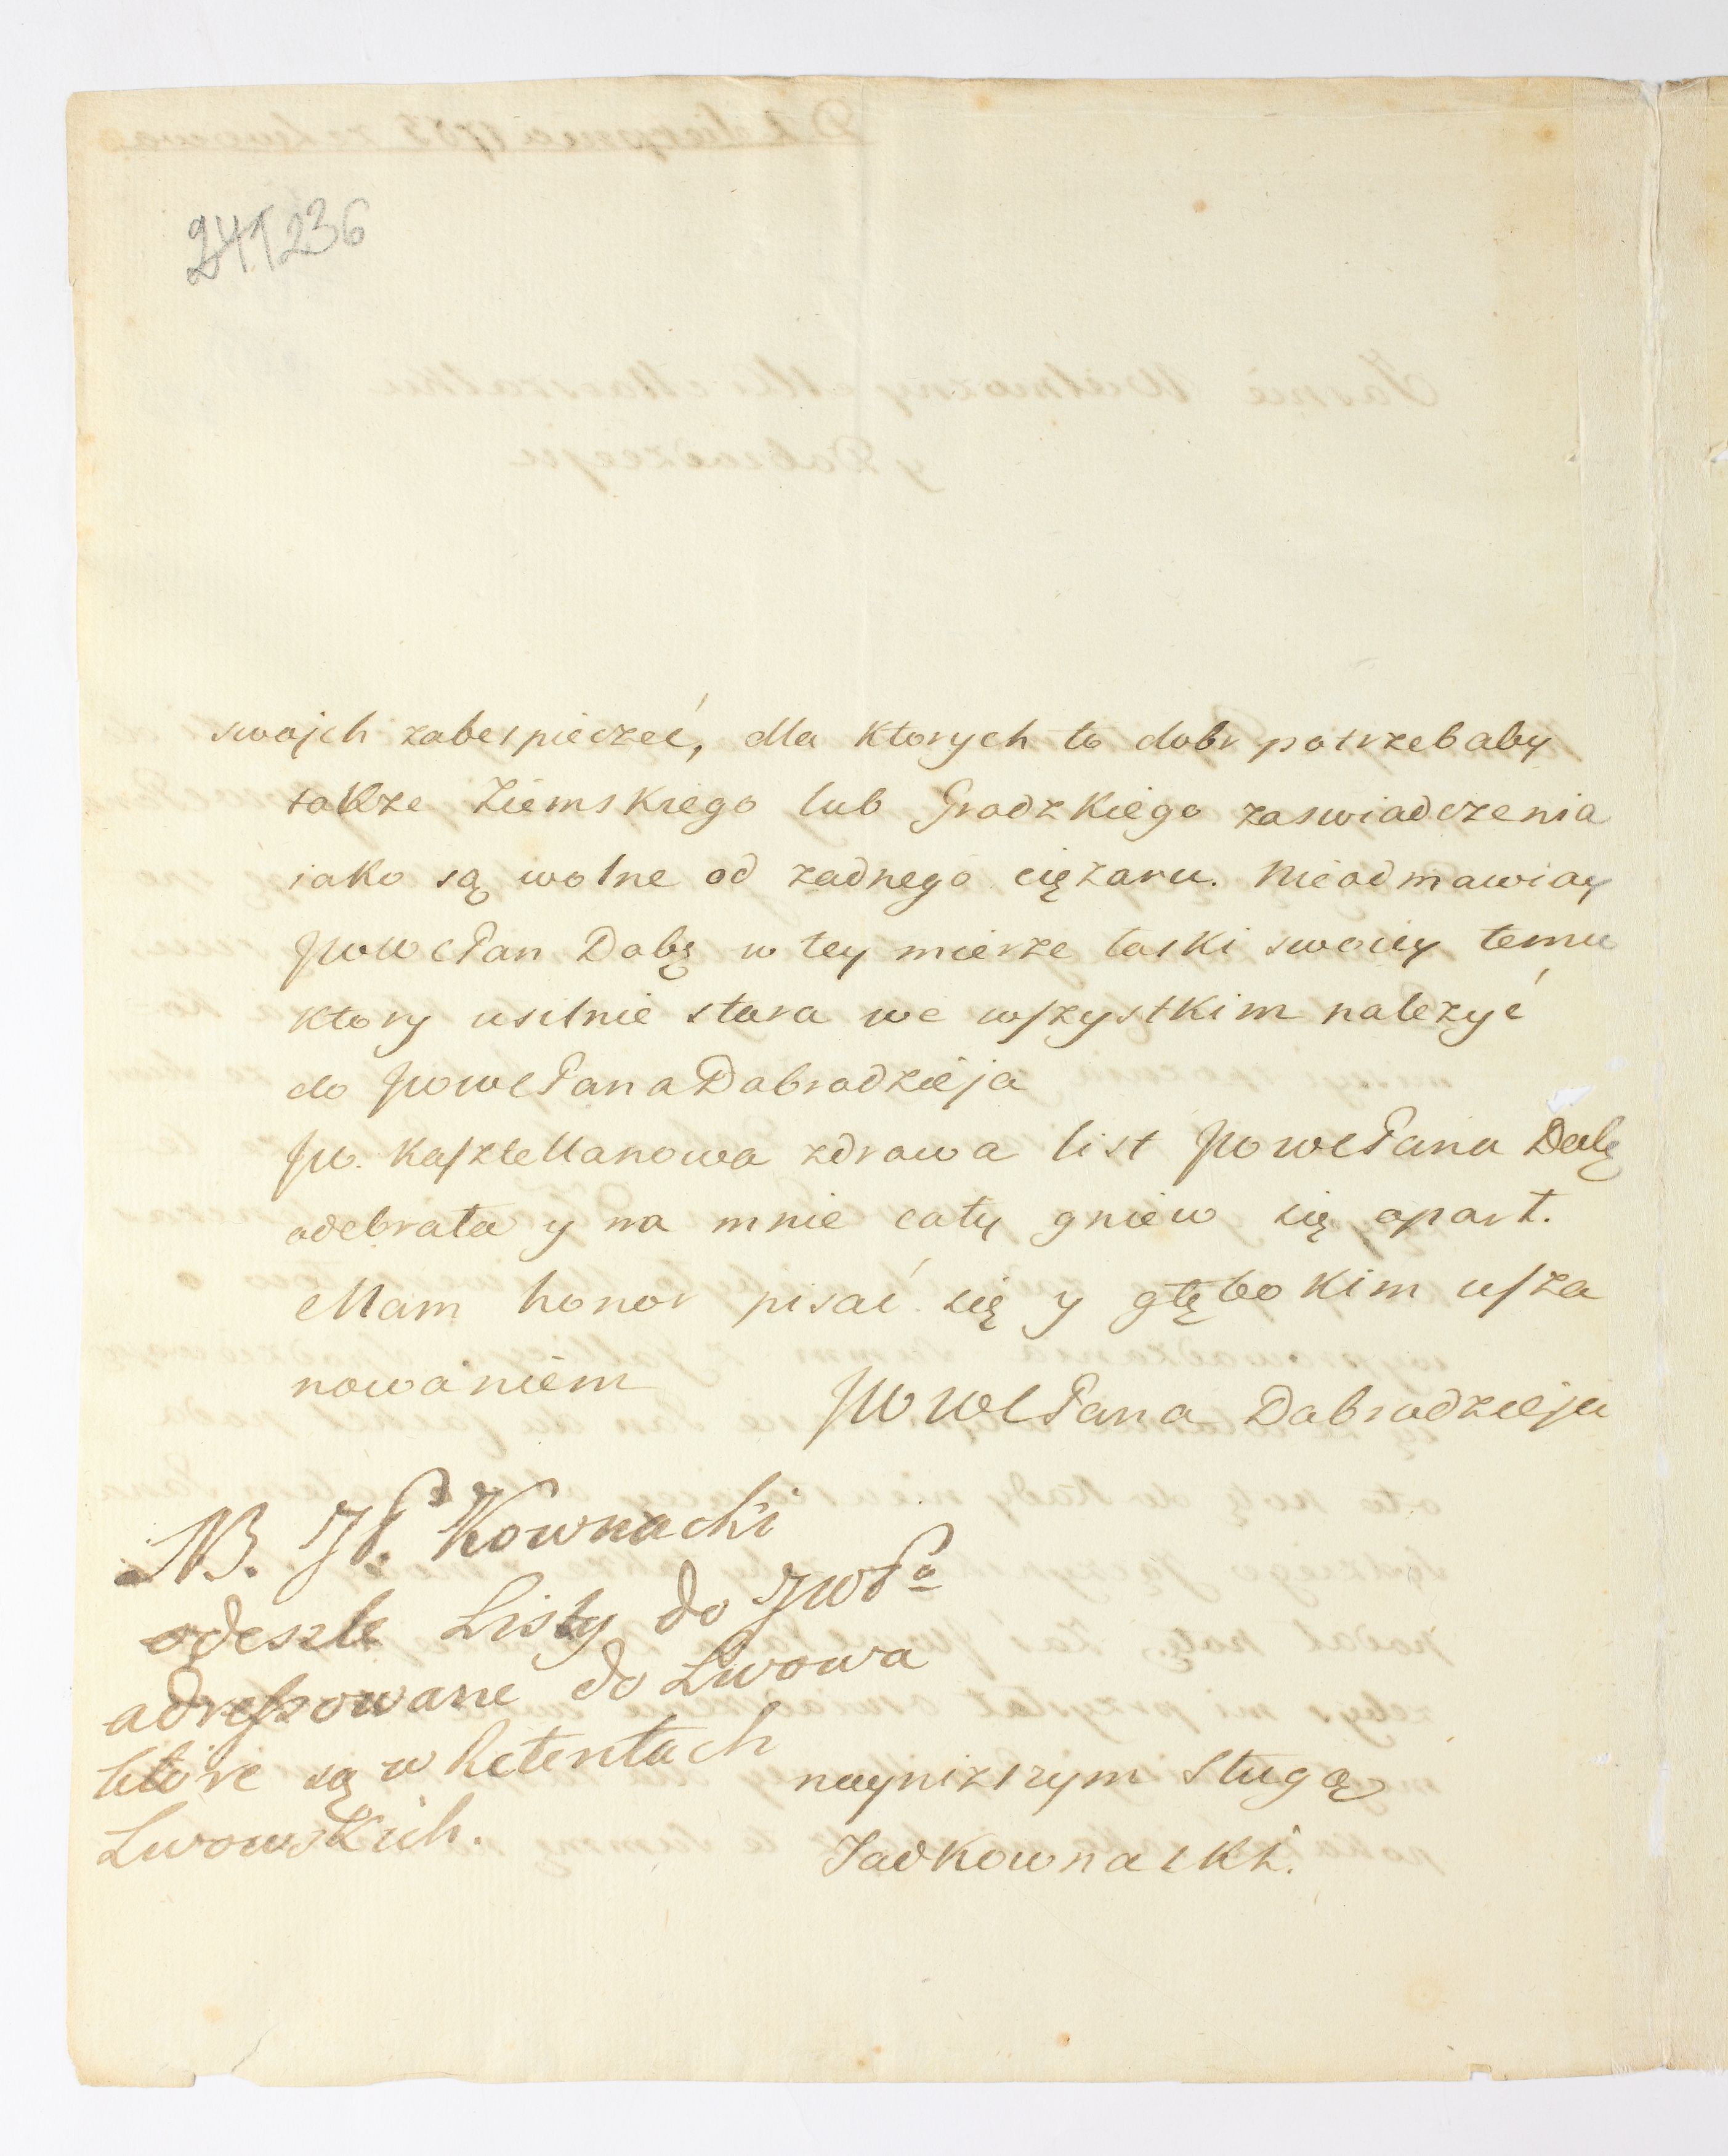 241 236
swojch zabespieczeć, dla ktorych to dobr potrzebaby
takze Ziemskiego lub Grodzkiego zaswiadczenia
iako są wolne od zadnego cięzaru. Nieodmawiay
JWWcPan Dobę w tey mierze łaski swoiey temu
ktory usilnie stara we wszystkim nalezyć
do JWWcPana Dobrodzieja
JW. Kasztellanowa zdrowa list JWWcPana Dobę
odebrała y na mnie cały gniew się oparł.
Mam honor pisać się y głębokim usza
nowaniem
JWWcPana Dobrodzieja
NB. JP. Kownacki
odeszle Listy do JWPa
adreszowane do Lwowa
które są w Retentach
Lwowskich.
nayniższym sługą
Kownacki.